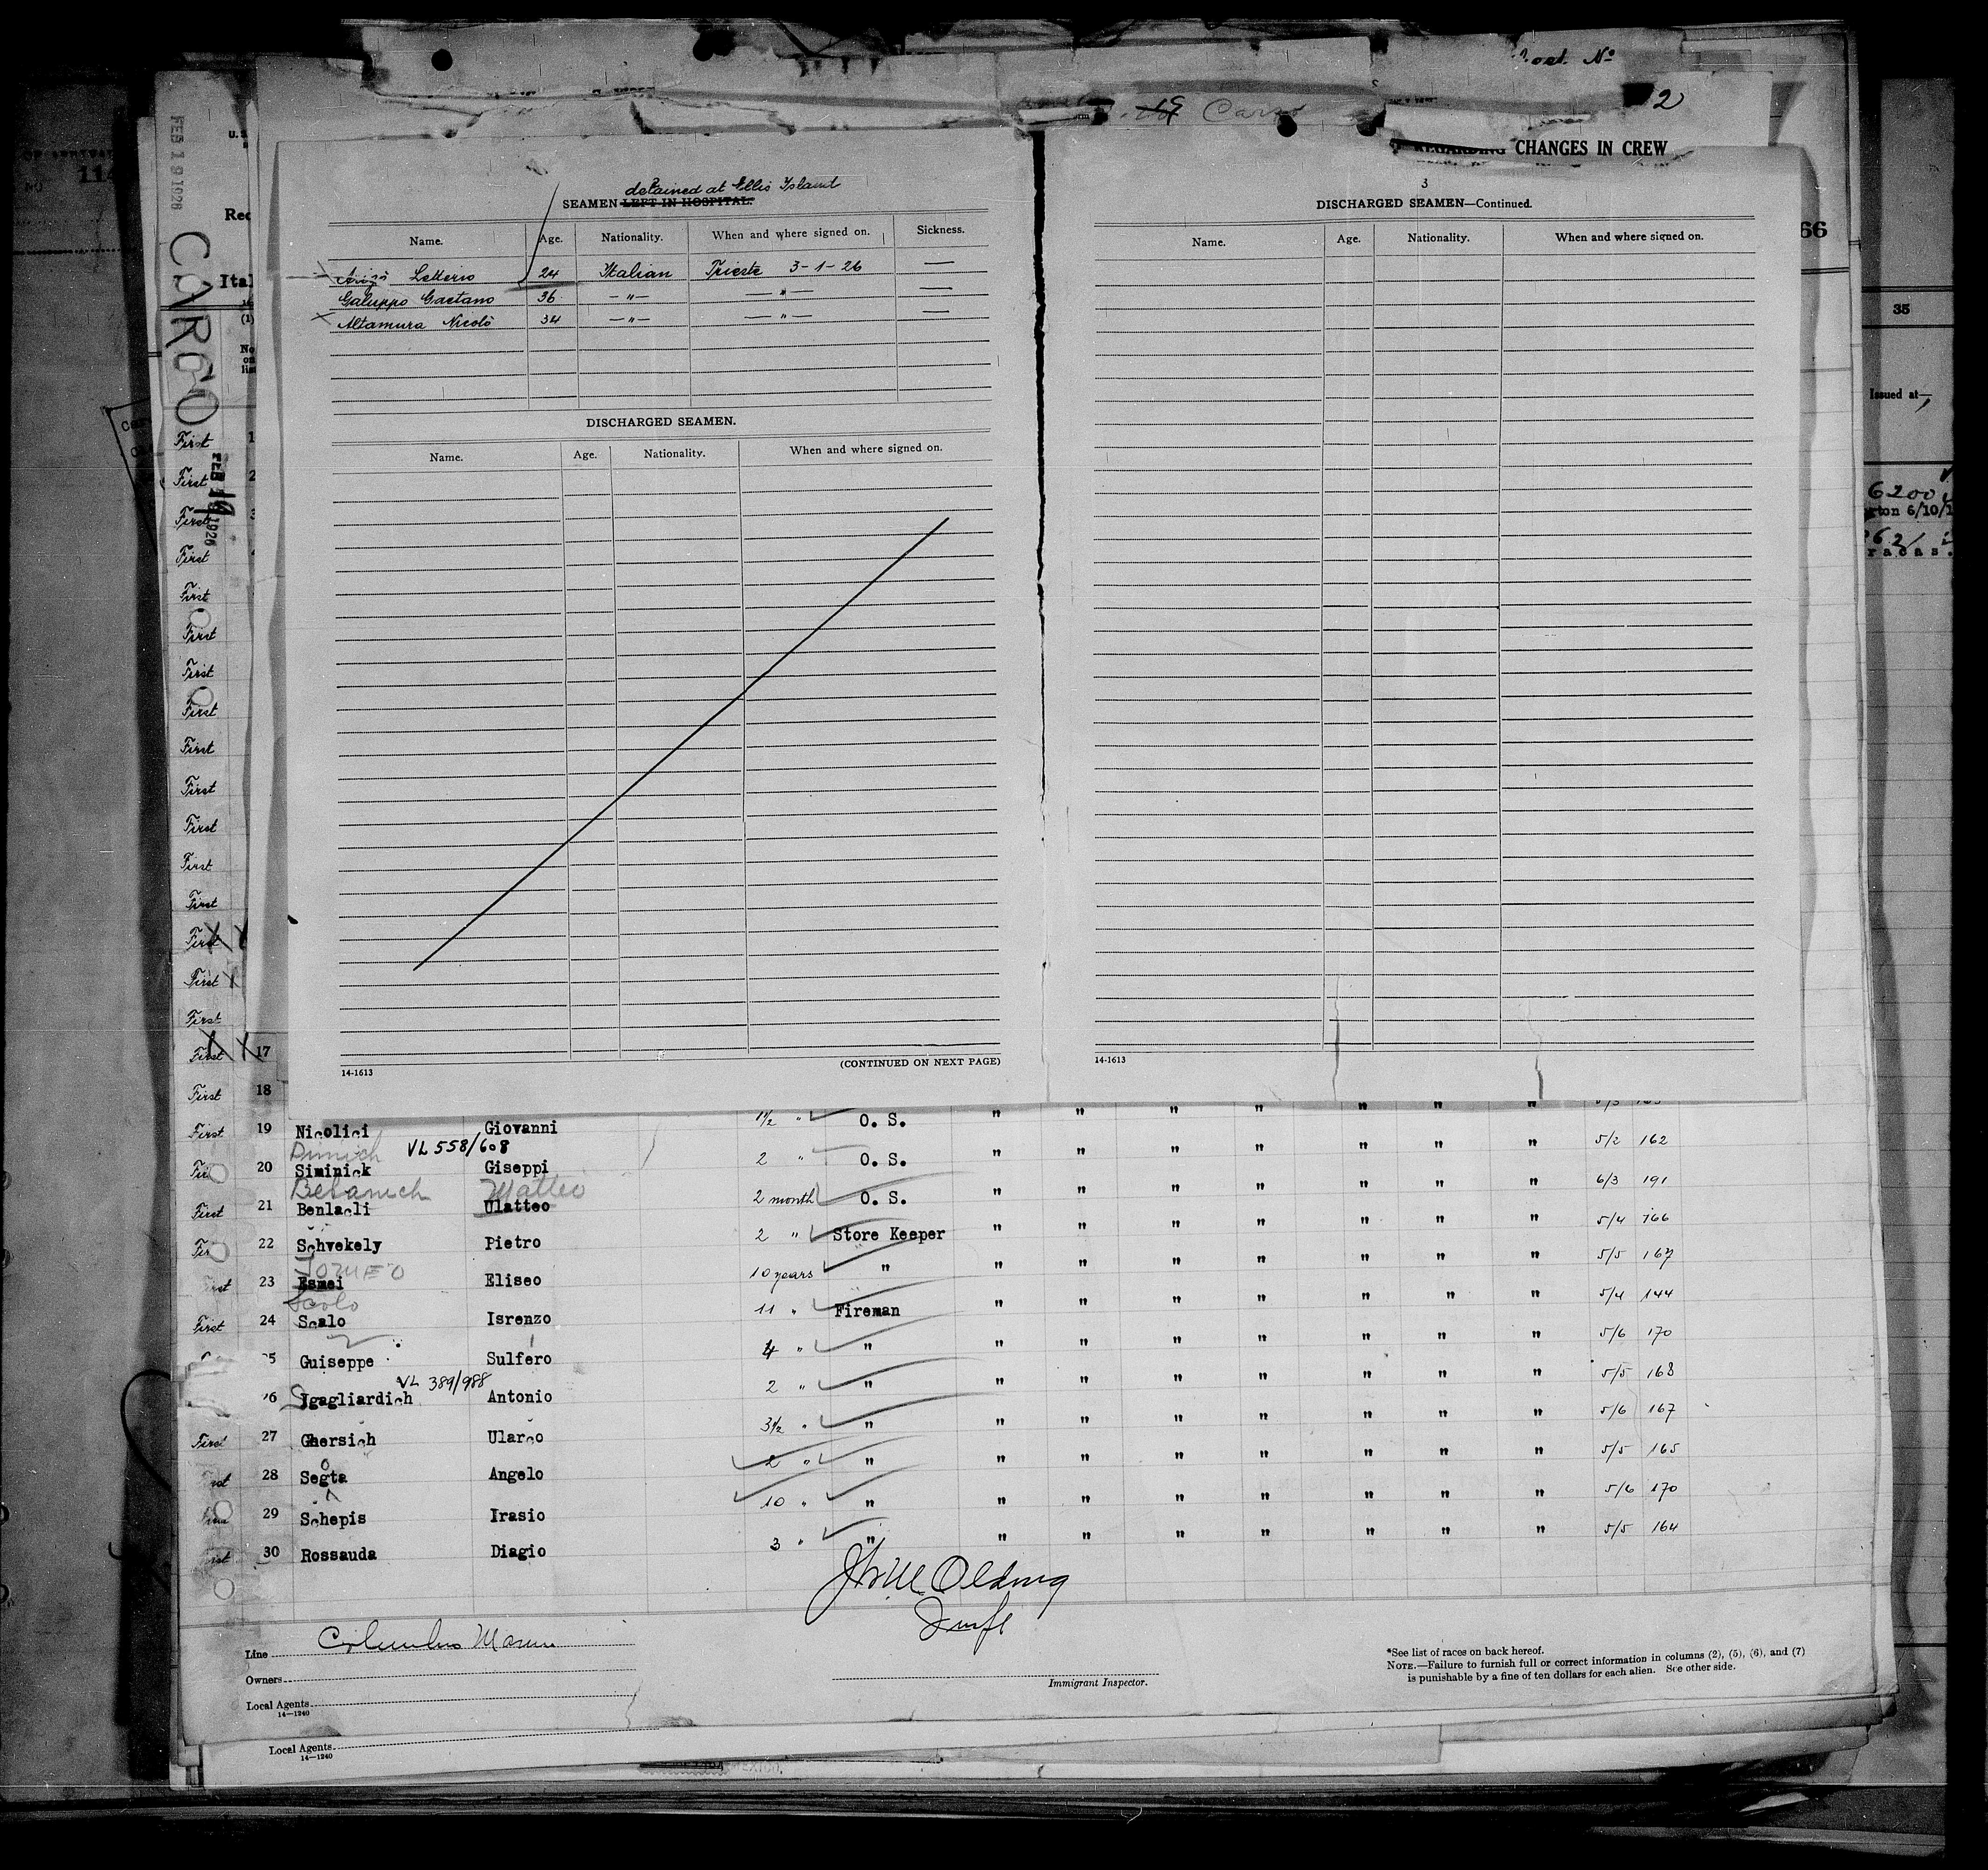 Carso
2
CHANGES IN CREW
FEB 19 1926
CARSO
detained at Ellis Island
SEAMEN LEFT IN HOSPITAL.
Name. Age. Nationality. When and where signed on. Sickness.
Letterio 24 Italian Trieste 3-1-26 —
Galuppo Gaetano 36 —"— —"— —
Altamura Nicolò 34 —"— —"— —
DISCHARGED SEAMEN.
Name. Age. Nationality. When and where signed on.
(CONTINUED ON NEXT PAGE)
14-1613
3
DISCHARGED SEAMEN—Continued.
Name. Age. Nationality. When and where signed on.
14-1613
66
35
Issued at—
First 1
First 2
First
First
First
First
First
First
First
First
First
First
First
First
First
First
First 17
First 18
First 19 Nicolici Giovanni 1½ " O. S. " " " " " " "
VL 558/608
20 Siminick Giseppi 2 " O. S. " " " " " " " 5/2 162
Matteo
First 21 Benlacli Ulatteo 2 month O. S. " " " " " " " 6/3 191
22 Schvekely Pietro 2 " Store Keeper " " " " " " " 5/4 166
23 Esmei Eliseo 10 years " " " " " " " " 5/5 167
Scolo
First 24 Scalo Isrenzo 11 " Fireman " " " " " " " 5/4 144
5 Guiseppe Sulfero 4 " " " " " " " " " 5/6 170
VL 389/988
6 Igagliardich Antonio 2 " " " " " " " " " 5/5 168
First 27 Ghersich Ularco 3½ " " " " " " " " " 5/6 167
28 Segta Angelo 2 " " " " " " " " " 5/5 165
29 Schepis Irasio 10 " " " " " " " " " 5/6 170
30 Rossauda Diagio 3 " " " " " " " " " 5/5 164
Line Columbus Marine
Owners
Local Agents
14—1240
Immigrant Inspector.
*See list of races on back hereof.
NOTE.—Failure to furnish full or correct information in columns (2), (5), (6), and (7)
is punishable by a fine of ten dollars for each alien. See other side.
Local Agents
14—1240